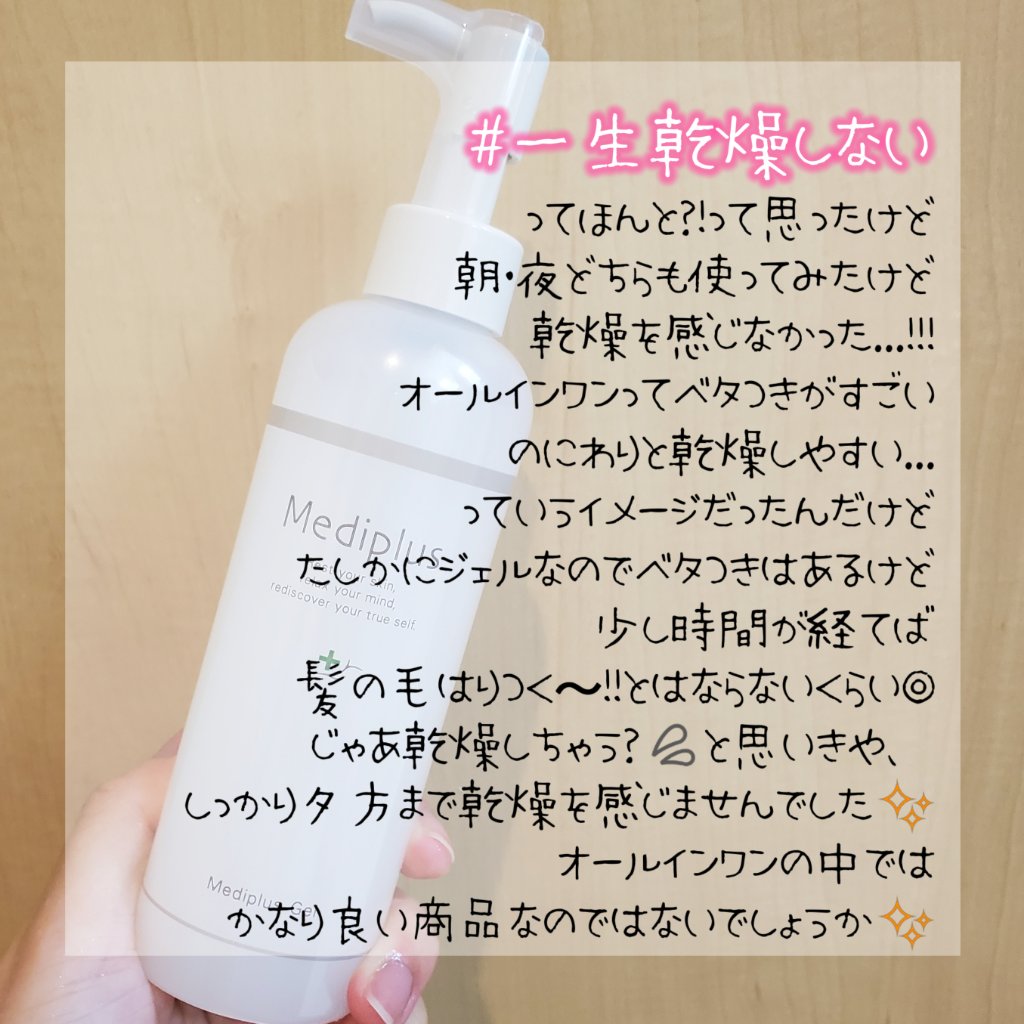 #一生乾燥しない
ってほんと?!って思ったけど
朝・夜どちらも使ってみたけど
乾燥を感じなかった…!!!
オールインワンってベタつきがすごい
のにわりと乾燥しやすい…
っていうイメージだったんだけど
たしかにジェルなのでベタつきはあるけど
少し時間が経てば
髪の毛はりつく〜!!とはならないくらい◎
じゃあ乾燥しちゃう?💦と思いきや、
しっかり夕方まで乾燥を感じませんでした✨
オールインワンの中では
かなり良い商品なのではないでしょうか✨
Mediplus
your skin,
your mind,
rediscover your true self.
Mediplus Gel